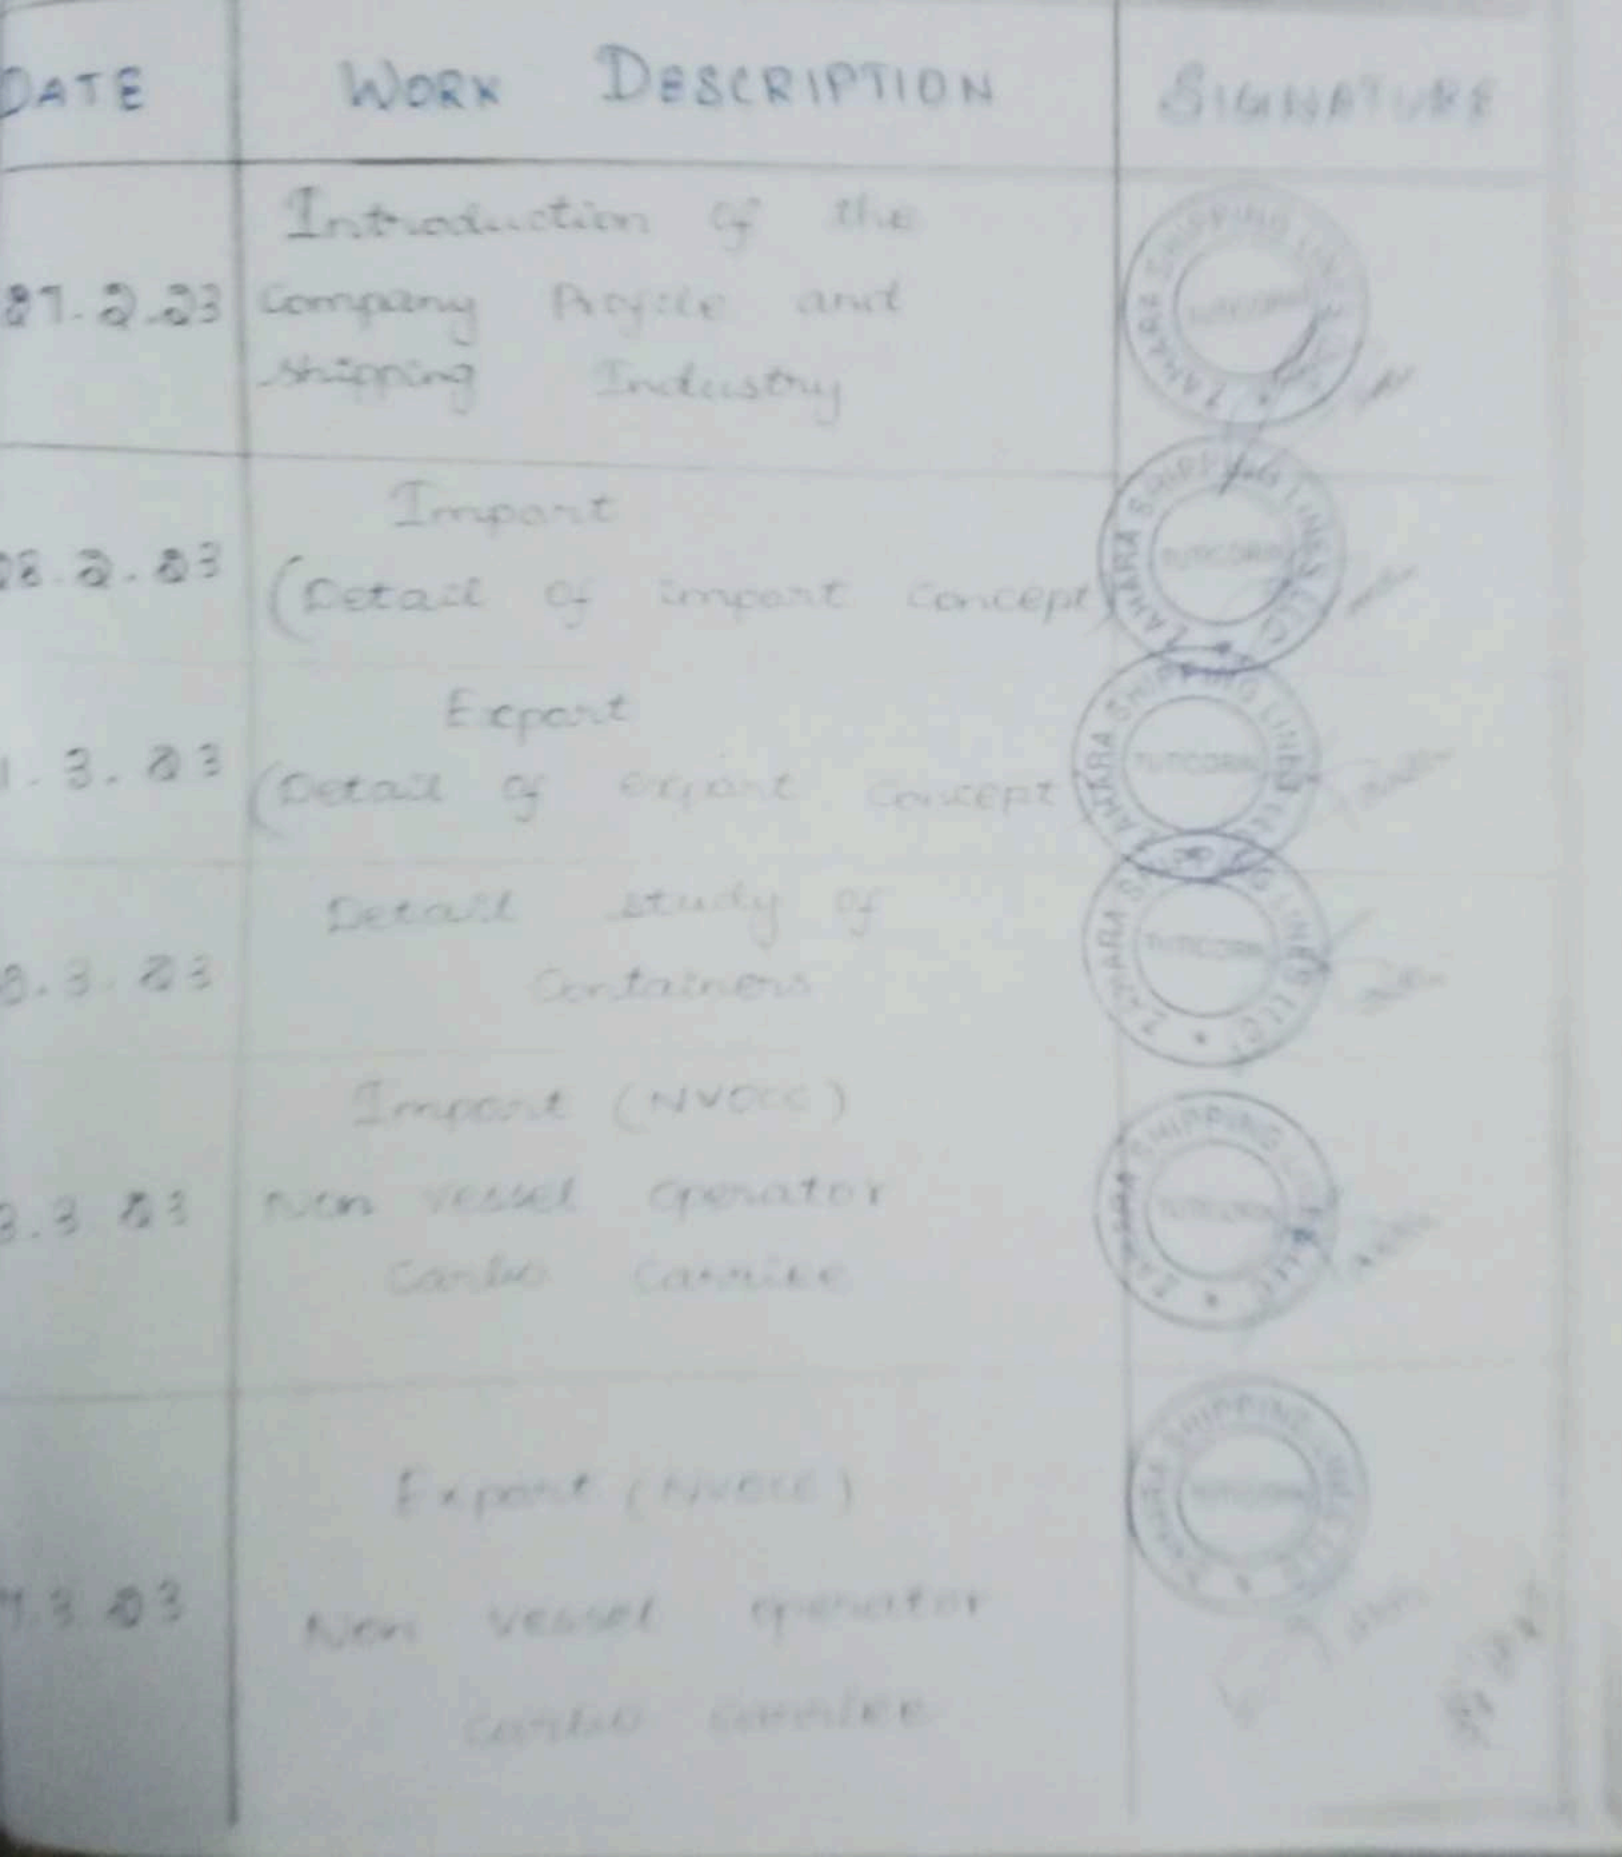 DATE WORK DESCRIPTION SIGNATURE
Introduction of the
27.2.23 Company Profile and
Shipping Industry
ZAHARA SHIPPING LINES
TUTICORIN
Import
28.2.23 (Detail of import concept
ZAHARA SHIPPING LINES LLC
TUTICORIN
Export
1.3.23 (Detail of export concept
ZAHARA SHIPPING LINES LLC
TUTICORIN
Detail study of
.3.23 Containers
ZAHARA SHIPPING LINES LLC
TUTICORIN
Import (NVOCC)
3.3 23 Non vessel operator
Carbo Carrier
ZAHARA SHIPPING LLC
TUTICORIN
Export (NVOCC)
.3 23 Non vessel operator
Carbo carrier
ZAHARA SHIPPING LINES LLC
TUTICORIN